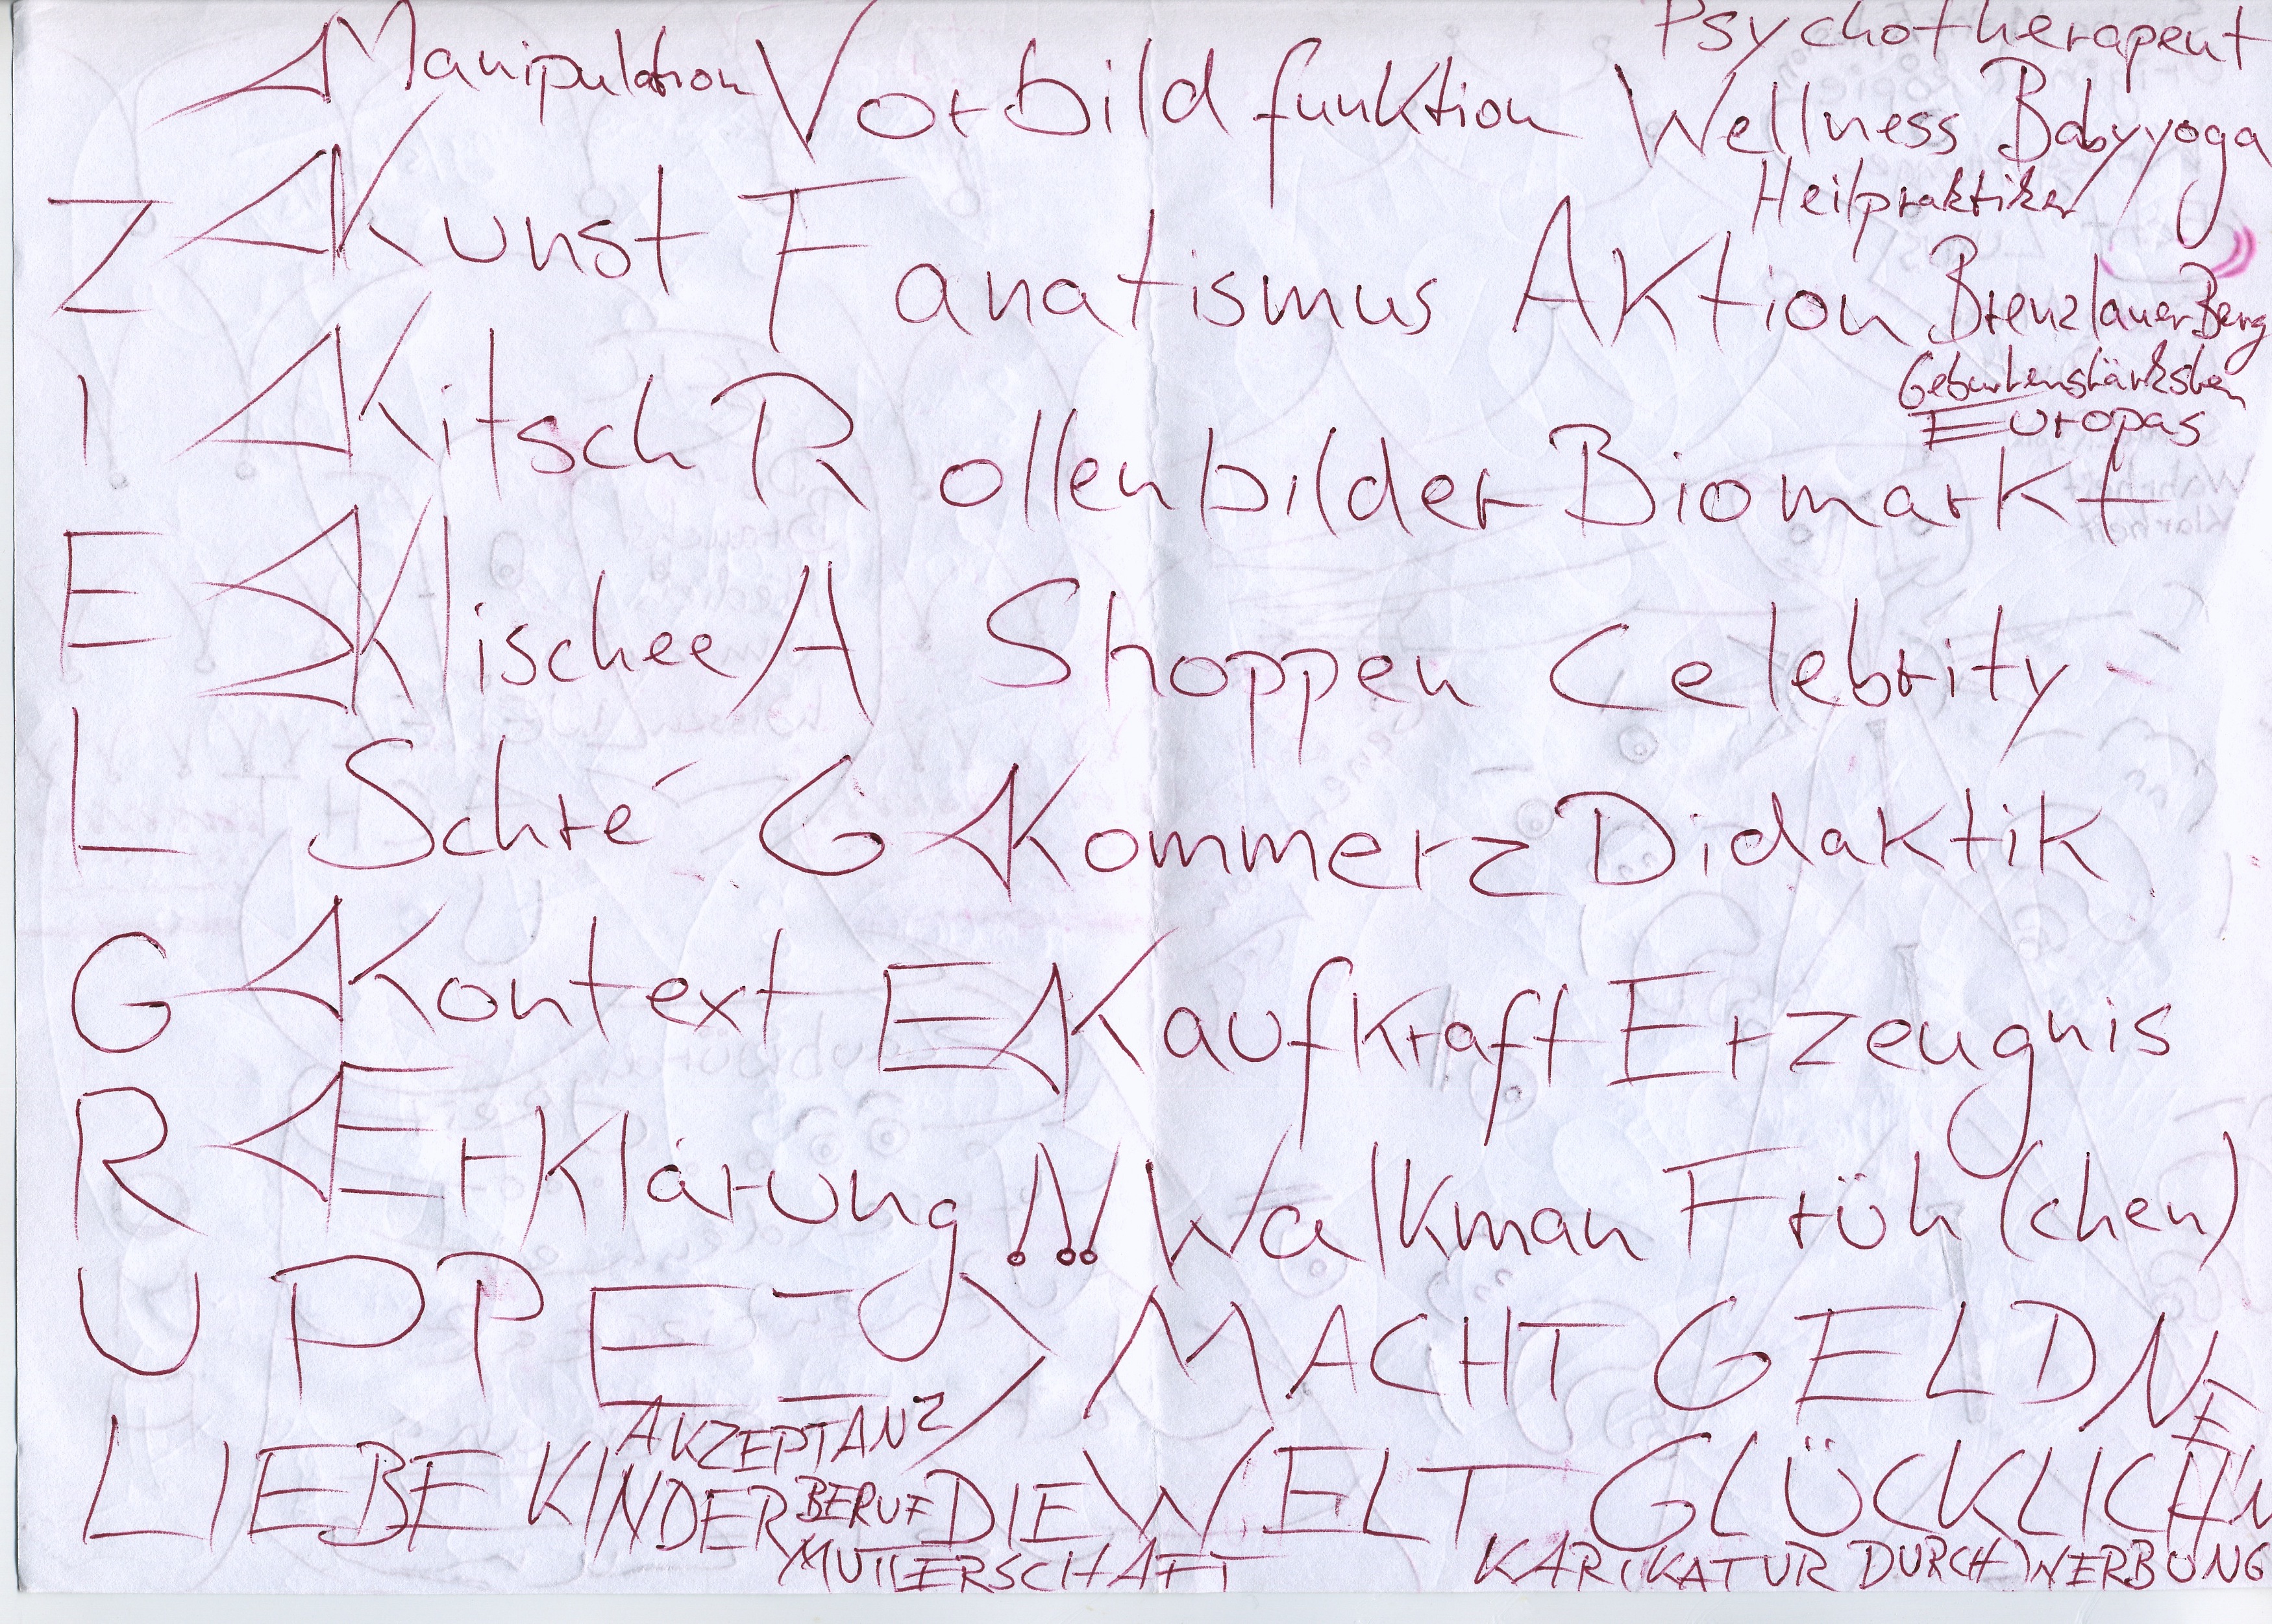 Psychotherapeut
Manipulation Vorbildfunktion Wellness Babyyoga
Heilpraktiker
Z Kunst Fanatismus Aktion Brenzlauer Berg
Geburtenstärksten
Europas
I Kitsch R ollenbilder Biomarkt
E Klischee A Shoppen Celebrity-
L Schre´ G Kommerz Didaktik
G Kontext E Kaufkraft Erzeugnis
R Erklärung !!! Walkman Früh (chen)
U P P E MACHT GELD
AKZEPTANZ
LIEBE KINDER BERUF DIE WELT GLÜCKLICH
MUTTERSCHAFT KARIKATUR DURCH WERBUNG